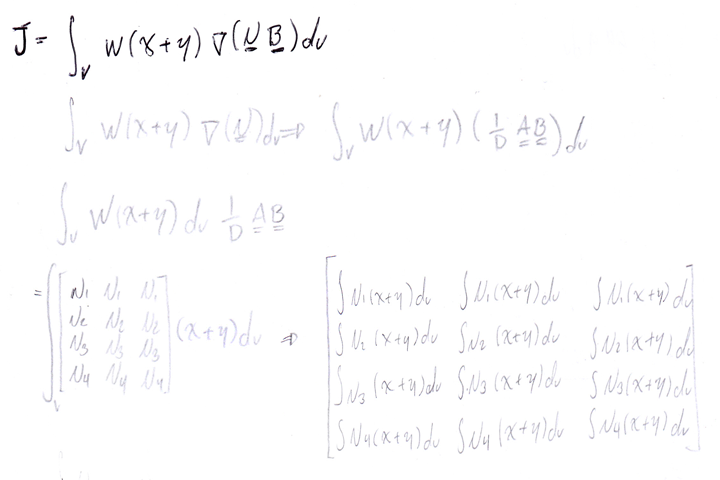 J = ∫_V W(x+y) ∇(N B) dv
∫_V W(x+y) ∇(N) dv ⇒ ∫_V W(x+y) (1/D A B) dv
∫_V W(x+y) dv 1/D A B
= ∫_V [N1 N1 N1; N2 N2 N2; N3 N3 N3; N4 N4 N4] (x+y) dv ⇒ [∫N1(x+y)dv ∫N1(x+y)dv ∫N1(x+y)dv;
∫N2(x+y)dv ∫N2(x+y)dv ∫N2(x+y)dv;
∫N3(x+y)dv ∫N3(x+y)dv ∫N3(x+y)dv;
∫N4(x+y)dv ∫N4(x+y)dv ∫N4(x+y)dv]